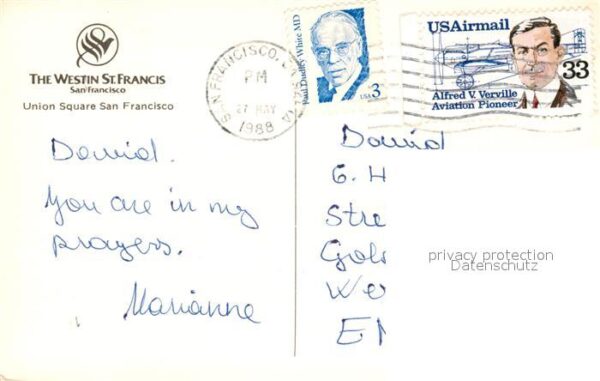 THE WESTIN ST. FRANCIS
San Francisco
Union Square San Francisco
SAN FRANCISCO, CA
PM
27 MAY
1988
Paul Dudley White MD
USA 3
USAirmail
33
Alfred V. Verville
Aviation Pioneer
David.
You are in my
prayers.
Marianne
David
6. H
Stre
Gol
We
E
privacy protection
Datenschutz